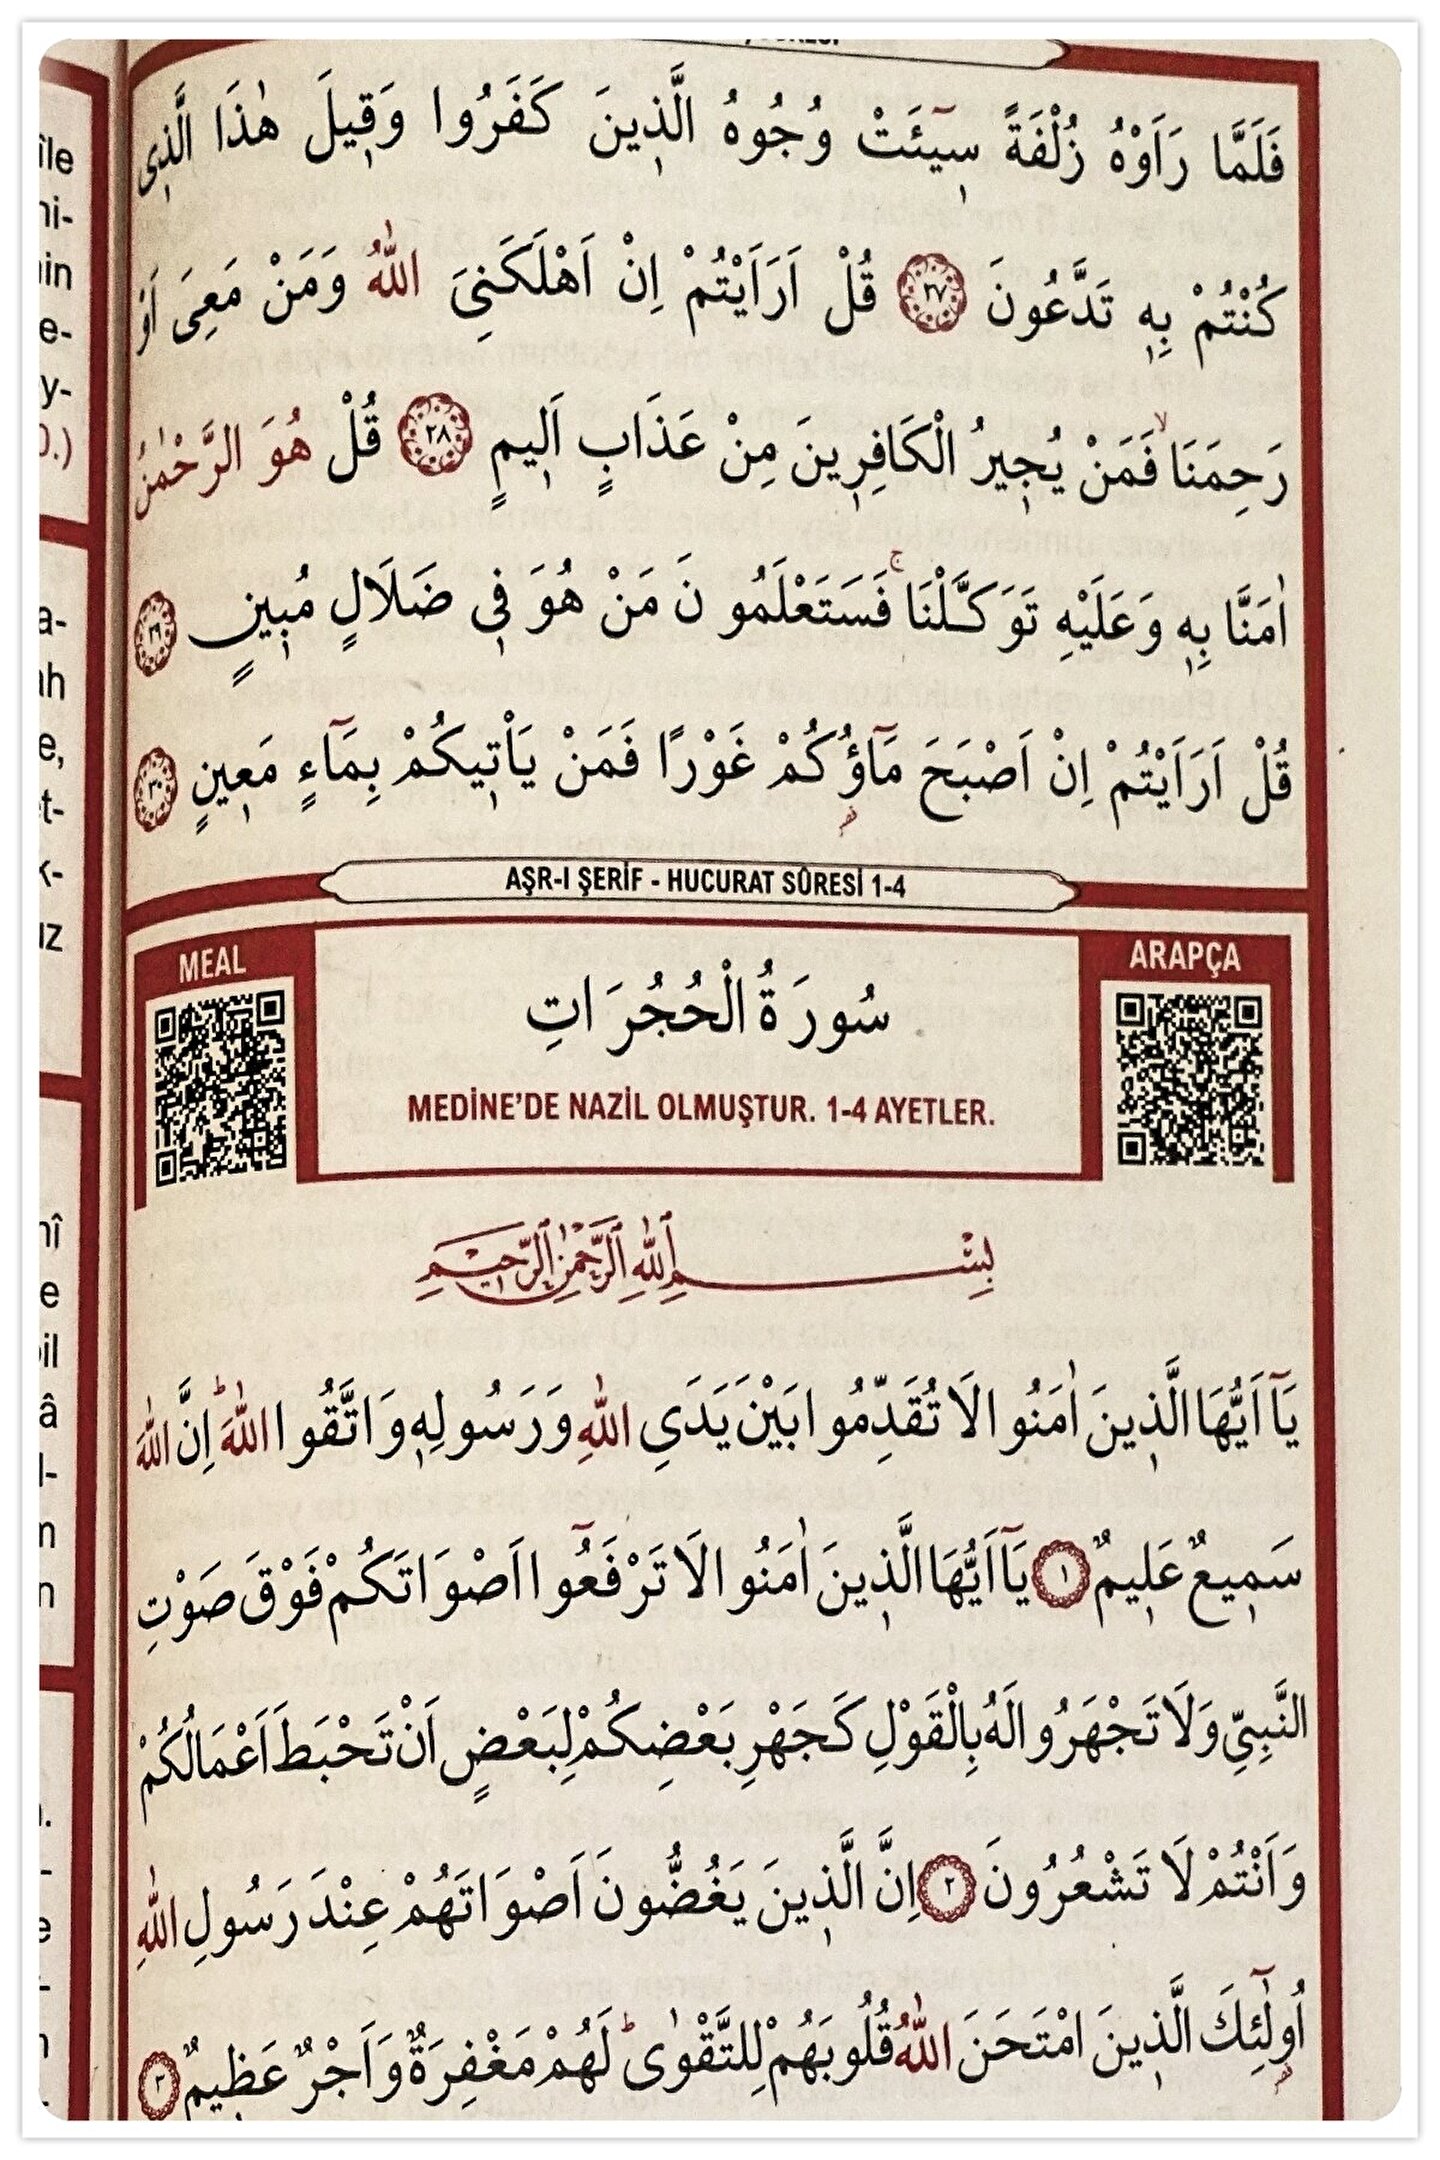 فَلَمَّا رَاَوْهُ زُلْفَةً سٖٓيئَتْ وُجُوهُ الَّذٖينَ كَفَرُوا وَقٖيلَ هٰذَا الَّذٖى
كُنْتُمْ بِهٖ تَدَّعُونَ ﴿٢٧﴾ قُلْ اَرَاَيْتُمْ اِنْ اَهْلَكَنِىَ اللّٰهُ وَمَنْ مَعِىَ اَوْ
رَحِمَنَاۙ فَمَنْ يُجٖيرُ الْكَافِرٖينَ مِنْ عَذَابٍ اَلٖيمٍ ﴿٢٨﴾ قُلْ هُوَ الرَّحْمٰنُ
اٰمَنَّا بِهٖ وَعَلَيْهِ تَوَكَّلْنَاۚ فَسَتَعْلَمُونَ مَنْ هُوَ فٖى ضَلَالٍ مُبٖينٍ ﴿٢٩﴾
قُلْ اَرَاَيْتُمْ اِنْ اَصْبَحَ مَٓاؤُكُمْ غَوْرًا فَمَنْ يَاْتٖيكُمْ بِمَٓاءٍ مَعٖينٍ ﴿٣٠﴾
AŞR-I ŞERİF - HUCURAT SÛRESİ 1-4
MEAL
ARAPÇA
سُورَةُ الْحُجُرَاتِ
MEDİNE'DE NAZİL OLMUŞTUR. 1-4 AYETLER.
بِسْمِ اللّٰهِ الرَّحْمٰنِ الرَّحٖيمِ
يَٓا اَيُّهَا الَّذٖينَ اٰمَنُوا لَا تُقَدِّمُوا بَيْنَ يَدَىِ اللّٰهِ وَرَسُولِهٖ وَاتَّقُوا اللّٰهَؕ اِنَّ اللّٰهَ
سَمٖيعٌ عَلٖيمٌ ﴿١﴾ يَٓا اَيُّهَا الَّذٖينَ اٰمَنُوا لَا تَرْفَعُٓوا اَصْوَاتَكُمْ فَوْقَ صَوْتِ
النَّبِىِّ وَلَا تَجْهَرُوا لَهُ بِالْقَوْلِ كَجَهْرِ بَعْضِكُمْ لِبَعْضٍ اَنْ تَحْبَطَ اَعْمَالُكُمْ
وَاَنْتُمْ لَا تَشْعُرُونَ ﴿٢﴾ اِنَّ الَّذٖينَ يَغُضُّونَ اَصْوَاتَهُمْ عِنْدَ رَسُولِ اللّٰهِ
اُولٰٓئِكَ الَّذٖينَ امْتَحَنَ اللّٰهُ قُلُوبَهُمْ لِلتَّقْوٰىؕ لَهُمْ مَغْفِرَةٌ وَاَجْرٌ عَظٖيمٌ ﴿٣﴾